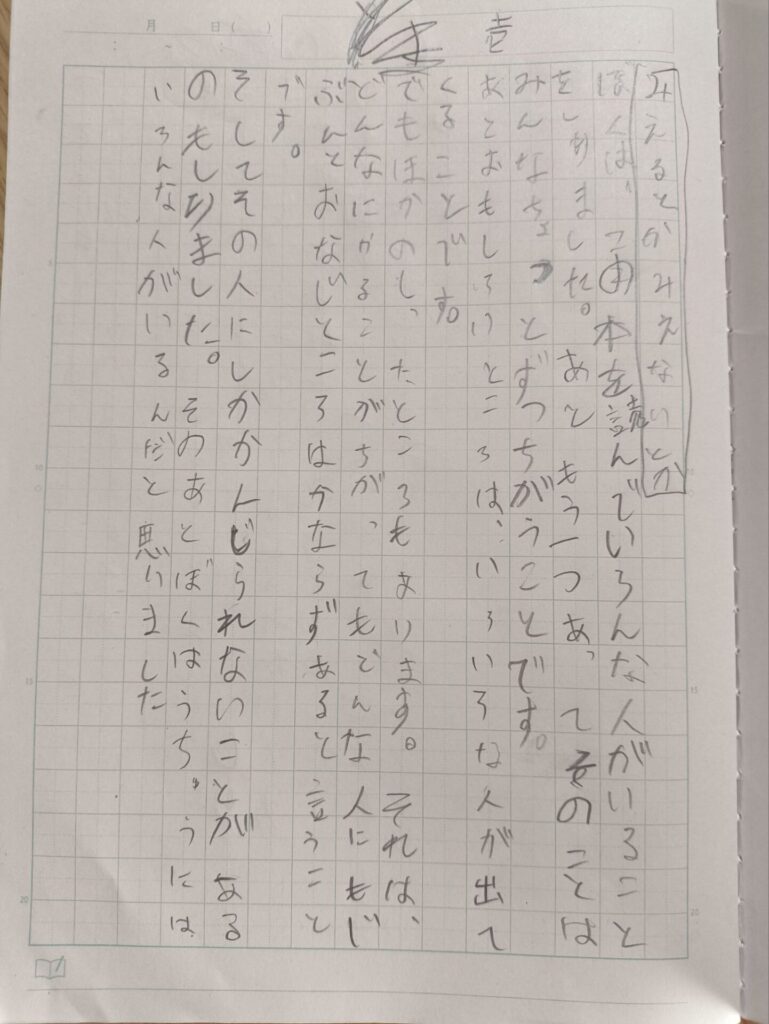 月 日( )
壱
みえるとかみえないとか
ぼくは、この本を読んでいろんな人がいること
をしりました。あともう一つあってそのことは
みんなちょっとずつちがうことです。
あとおもしろいところは、いろいろな人が出て
くることです。
でもほかのしったところもあります。それは、
どんなにかることがちがってもどんな人にもじ
ぶんとおなじところはかならずあると言うこと
です。
そしてその人にしかかんじられないことがある
のもしりました。そのあとぼくはうちゅうには
いろんな人がいるんだと思いました